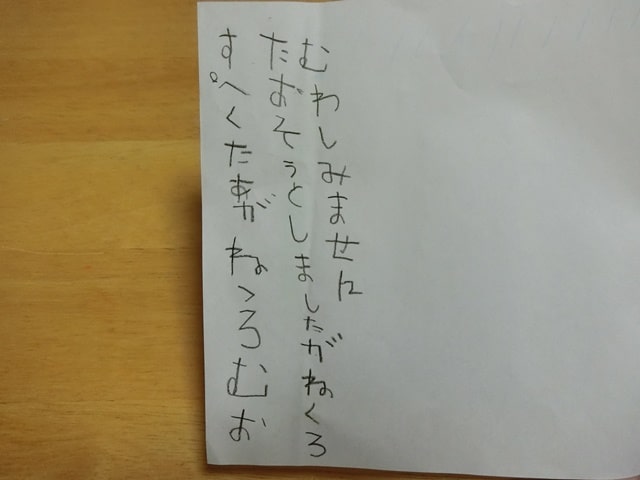 すぺくたあがねくろむお
たおそうとしましたがねくろ
むわしみませに